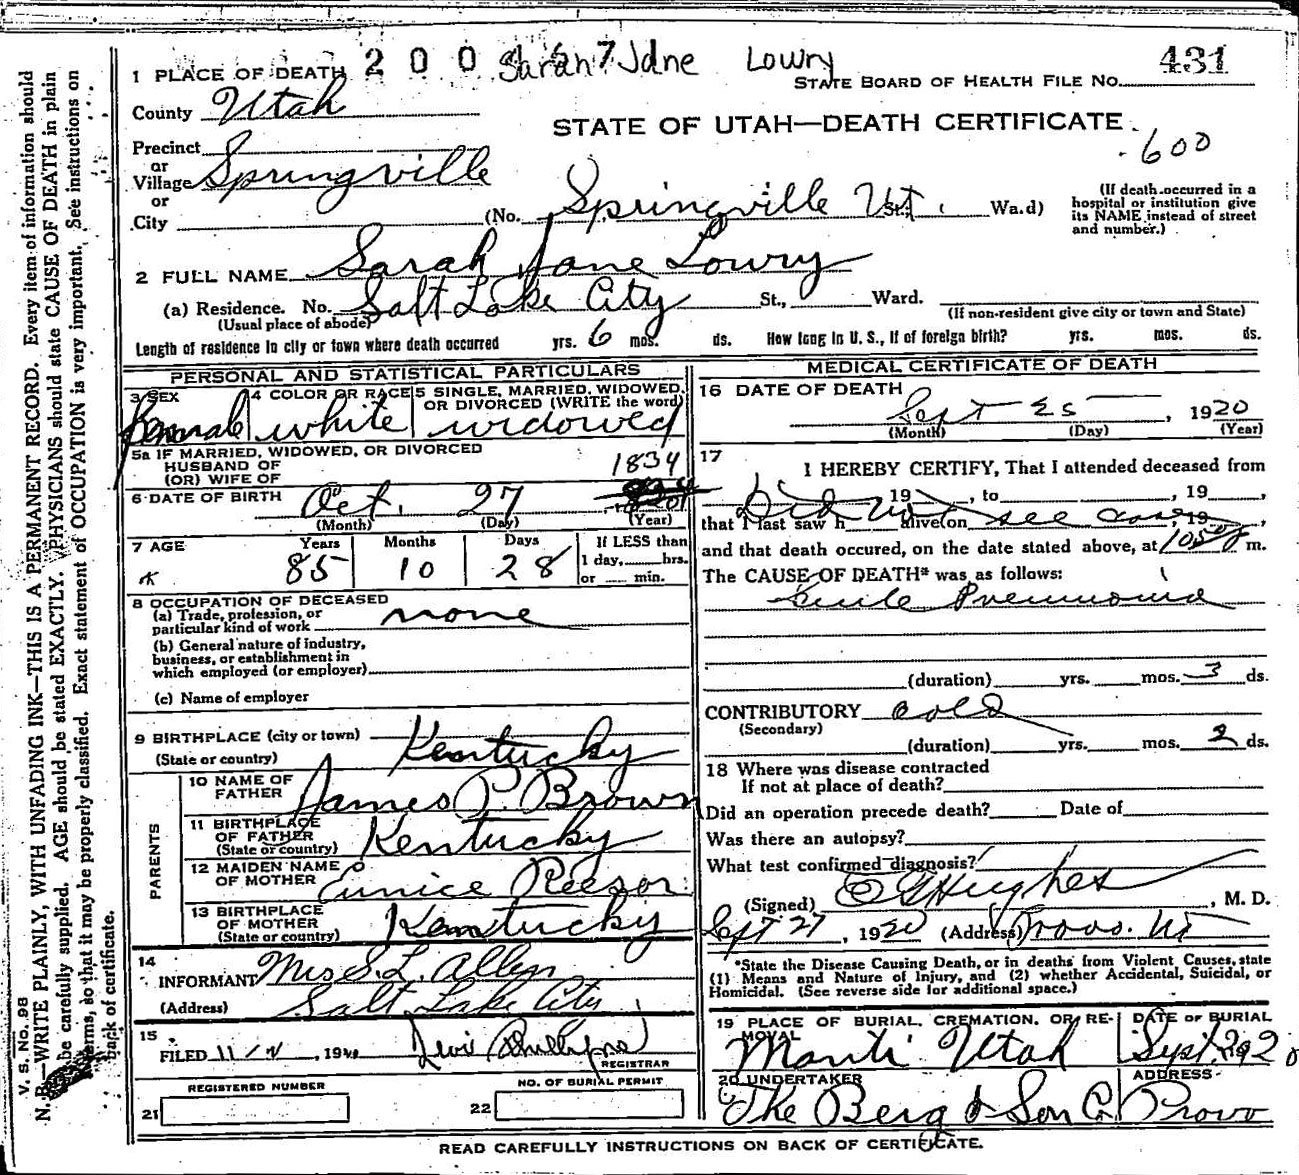 1 PLACE OF DEATH 2 0 0 Sarah Jane Lowry 431
STATE BOARD OF HEALTH FILE NO.
County Utah
STATE OF UTAH—DEATH CERTIFICATE
600
Precinct
or
Village Springville
or
City (No. Springville Ut. St. Wa.d)
(If death occurred in a
hospital or institution give
its NAME instead of street
and number.)
2 FULL NAME Sarah Jane Lowry
(a) Residence. No. Salt Lake City St., Ward.
(Usual place of abode) (If non-resident give city or town and State)
Length of residence in city or town where death occurred yrs. 6 mos. ds. How long in U. S., if of foreign birth? yrs. mos. ds.
PERSONAL AND STATISTICAL PARTICULARS
3 SEX female
4 COLOR OR RACE white
5 SINGLE, MARRIED, WIDOWED,
OR DIVORCED (WRITE the word)
widowed
5a IF MARRIED, WIDOWED, OR DIVORCED
HUSBAND OF
(OR) WIFE OF
1834
6 DATE OF BIRTH Oct. 27
(Month) (Day) (Year)
7 AGE Years Months Days If LESS than
1 day, hrs.
or min.
85 10 28
8 OCCUPATION OF DECEASED
(a) Trade, profession, or
particular kind of work none
(b) General nature of industry,
business, or establishment in
which employed (or employer)
(c) Name of employer
9 BIRTHPLACE (city or town)
(State or country) Kentucky
PARENTS
10 NAME OF
FATHER James P. Brown
11 BIRTHPLACE
OF FATHER
(State or country) Kentucky
12 MAIDEN NAME
OF MOTHER Eunice Reesor
13 BIRTHPLACE
OF MOTHER
(State or country) Kentucky
14
INFORMANT Mrs S. L. Allen
(Address) Salt Lake City
15
FILED 11/ , 19 Levi Phillips
REGISTRAR
REGISTERED NUMBER
21
NO. OF BURIAL PERMIT
22
MEDICAL CERTIFICATE OF DEATH
16 DATE OF DEATH
Sept 25, 1920
(Month) (Day) (Year)
17
I HEREBY CERTIFY, That I attended deceased from
Did not , 19 , to , 19 ,
that I last saw h alive on see case , 19 ,
and that death occured, on the date stated above, at m.
The CAUSE OF DEATH* was as follows:
Senile Pneumonia
(duration) yrs. mos. 3 ds.
CONTRIBUTORY cold
(Secondary)
(duration) yrs. mos. 2 ds.
18 Where was disease contracted
If not at place of death?
Did an operation precede death? Date of
Was there an autopsy?
What test confirmed diagnosis?
(Signed) E G Hughes, M. D.
Sept 27, 1920 (Address) Provo. Ut
*State the Disease Causing Death, or in deaths from Violent Causes, state
(1) Means and Nature of Injury, and (2) whether Accidental, Suicidal, or
Homicidal. (See reverse side for additional space.)
19 PLACE OF BURIAL, CREMATION, OR RE-
MOVAL
Manti Utah
DATE OF BURIAL
Sept.
20 UNDERTAKER
The Berg & Son Co
ADDRESS
Provo
READ CAREFULLY INSTRUCTIONS ON BACK OF CERTIFICATE.
V. S. No. 98
N. B.—WRITE PLAINLY, WITH UNFADING INK—THIS IS A PERMANENT RECORD. Every item of information should
be carefully supplied. AGE should be stated EXACTLY. PHYSICIANS should state CAUSE OF DEATH in plain
terms, so that it may be properly classified. Exact statement of OCCUPATION is very important. See instructions on
back of certificate.